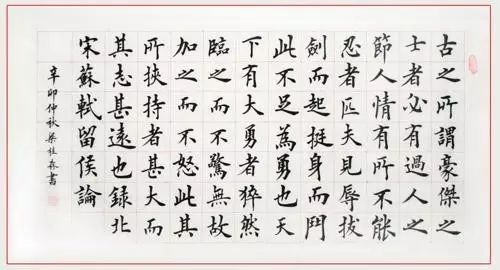 古之所謂豪傑之
士者必有過人之
節人情有所不能
忍者匹夫見辱拔
劍而起挺身而鬥
此不足為勇也天
下有大勇者猝然
臨之而不驚無故
加之而不怒此其
所挾持者甚大而
其志甚遠也錄北
宋蘇軾留侯論
辛卯仲秋梁桂森書